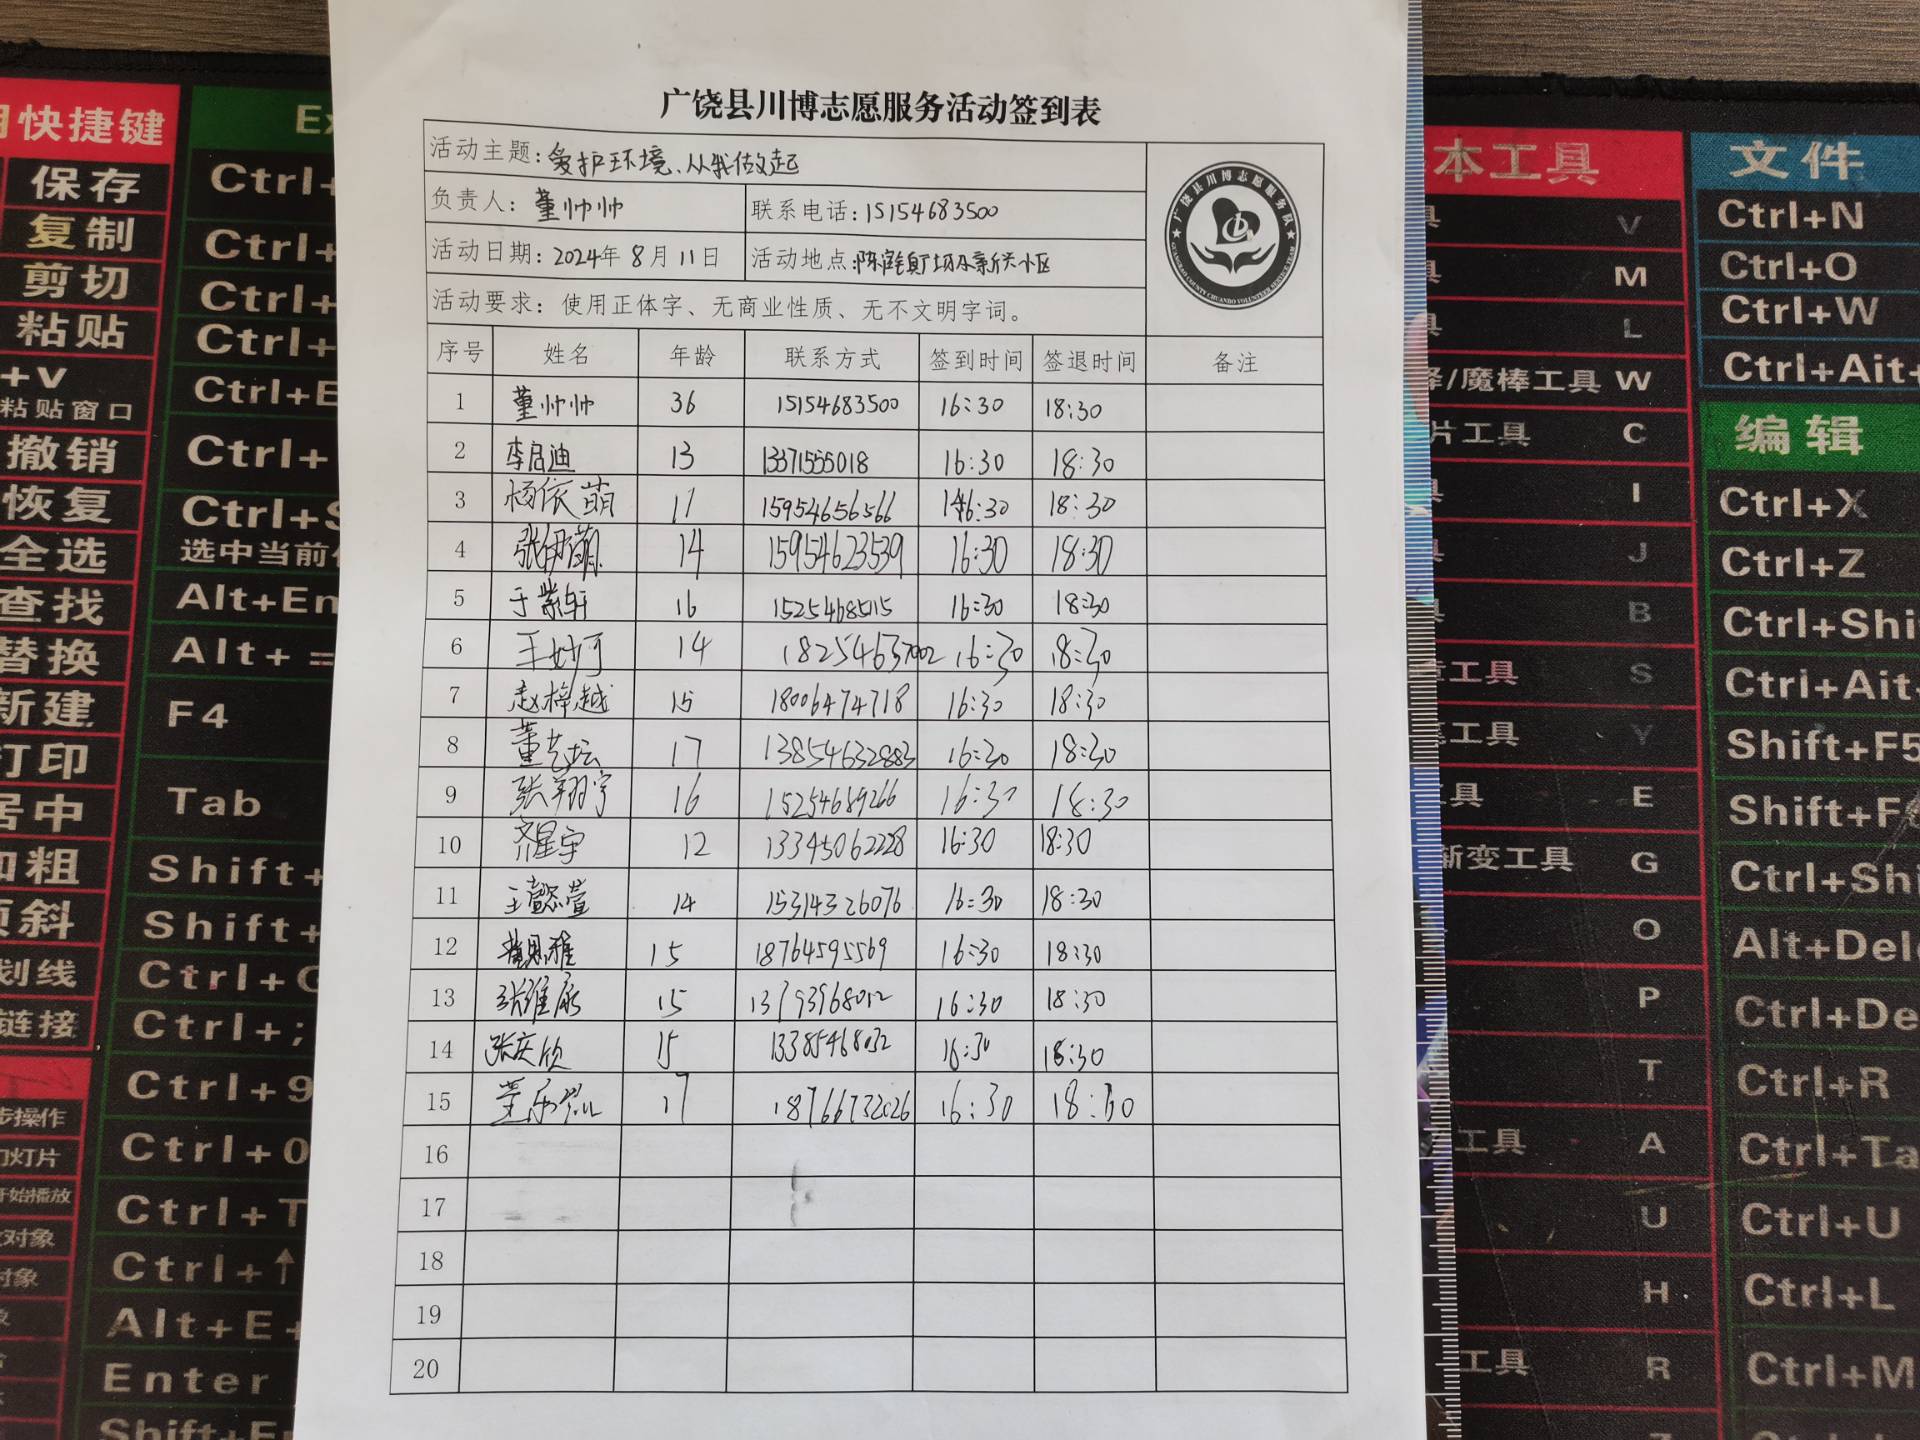 广饶县川博志愿服务活动签到表
活动主题：爱护环境、从我做起
负责人：董帅帅 联系电话：15154683500
活动日期：2024年8月11日 活动地点：
活动要求：使用正体字、无商业性质、无不文明字词。
广饶县川博志愿服务队
序号 姓名 年龄 联系方式 签到时间 签退时间 备注
1 董帅帅 36 15154683500 16:30 18:30
2 李启迪 13 13371555018 16:30 18:30
3 杨依萌 11 15954656566 16:30 18:30
4 张伊萌 14 15954623539 16:30 18:30
5 于紫轩 16 15254685115 16:30 18:30
6 王妙可 14 18254637002 16:30 18:30
7 赵梓越 15 18006474718 16:30 18:30
8 董艺坛 17 13854632883 16:30 18:30
9 张翔宇 16 15254689266 16:30 18:30
10 齐星宇 12 13345062228 16:30 18:30
11 王懿萱 14 15314326076 16:30 18:30
12 15 18764595569 16:30 18:30
13 张维康 15 13793968012 16:30 18:30
14 张庆欣 15 13385468032 16:30 18:30
15 董乐 17 18766732026 16:30 18:30
16
17
18
19
20
快捷键
保存 Ctrl+
复制 Ctrl+
剪切 Ctrl+
粘贴 Ctrl+
+V
粘贴窗口 Ctrl+E
撤销 Ctrl+
恢复 Ctrl+S
全选 选中当前
查找 Alt+En
替换 Alt+ =
新建 F4
打印
居中 Tab
加粗 Shift+
倾斜 Shift+
划线 Ctrl+G
链接 Ctrl+;
Ctrl+9
步操作
幻灯片 Ctrl+0
开始播放 Ctrl+T
对象
对象 Ctrl+↑
Alt+E+
Enter
Shift+E
本工具
V
M
L
/魔棒工具 W
片工具 C
I
J
B
工具 S
工具 Y
工具 E
渐变工具 G
O
P
T
工具 A
U
H
工具 R
文件
Ctrl+N
Ctrl+O
Ctrl+W
Ctrl+Ait+
编辑
Ctrl+X
Ctrl+Z
Ctrl+Shi
Ctri+Ait
Shift+F5
Shift+F
Ctrl+Shi
Alt+Dele
Ctrl+De
Ctrl+R
Ctrl+Ta
Ctrl+U
Ctrl+L
Ctrl+M